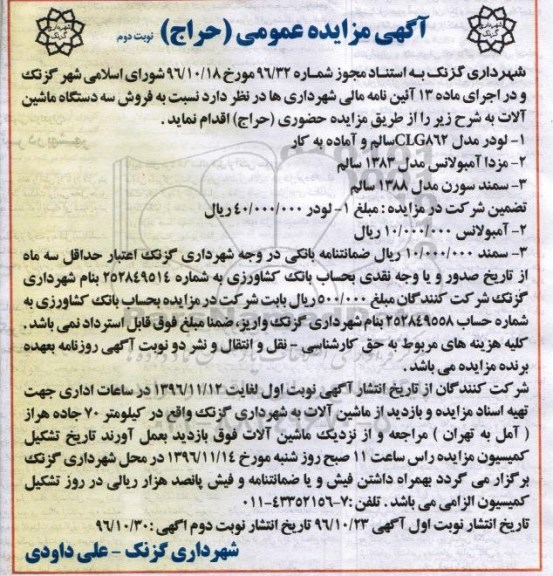 آگهی مزایده عمومی (حراج) نوبت دوم
شهرداری گزنک به استناد مجوز شماره ۹۶/۳۲ مورخ ۹۶/۱۰/۱۸ شورای اسلامی شهر گزنک
و در اجرای ماده ۱۳ آئین نامه مالی شهرداری ها در نظر دارد نسبت به فروش سه دستگاه ماشین
آلات به شرح زیر را از طریق مزایده حضوری (حراج) اقدام نماید .
۱- لودر مدل CLG۸۶۲سالم و آماده به کار
۲- مزدا آمبولانس مدل ۱۳۸۳ سالم
۳- سمند سورن مدل ۱۳۸۸ سالم
تضمین شرکت در مزایده : مبلغ ۱- لودر ۴۰/۰۰۰/۰۰۰ ریال
۲- آمبولانس ۱۰/۰۰۰/۰۰۰ ریال
۳- سمند ۱۰/۰۰۰/۰۰۰ ریال ضمانتنامه بانکی در وجه شهرداری گزنک اعتبار حداقل سه ماه
از تاریخ صدور و یا وجه نقدی بحساب بانک کشاورزی به شماره ۲۵۲۸۴۹۵۱۴ بنام شهرداری
گزنک شرکت کنندگان مبلغ ۵۰۰/۰۰۰ریال بابت شرکت در مزایده بحساب بانک کشاورزی به
شماره حساب ۲۵۲۸۴۹۵۵۸ بنام شهرداری گزنک واریز، ضمنا مبلغ فوق قابل استرداد نمی باشد .
کلیه هزینه های مربوط به حق کارشناسی - نقل و انتقال و نشر دو نوبت آگهی روزنامه بعهده
برنده مزایده می باشد .
شرکت کنندگان از تاریخ انتشار آگهی نوبت اول لغایت ۱۳۹۶/۱۱/۱۲ در ساعات اداری جهت
تهیه اسناد مزایده و بازدید از ماشین آلات به شهرداری گزنک واقع در کیلومتر ۷۰ جاده هراز
( آمل به تهران ) مراجعه و از نزدیک ماشین آلات فوق بازدید بعمل آورند تاریخ تشکیل
کمیسیون مزایده راس ساعت ۱۱ صبح روز شنبه مورخ ۱۳۹۶/۱۱/۱۴ در محل شهرداری گزنک
برگزار می گردد بهمراه داشتن فیش و یا ضمانتنامه و فیش پانصد هزار ریالی در روز تشکیل
کمیسیون الزامی می باشد . تلفن :۷-۴۳۳۵۲۱۵۶-۰۱۱
تاریخ انتشار نوبت اول آگهی ۹۶/۱۰/۲۳ تاریخ انتشار نوبت دوم اگهی :۹۶/۱۰/۳۰
شهرداری گزنک - علی داودی